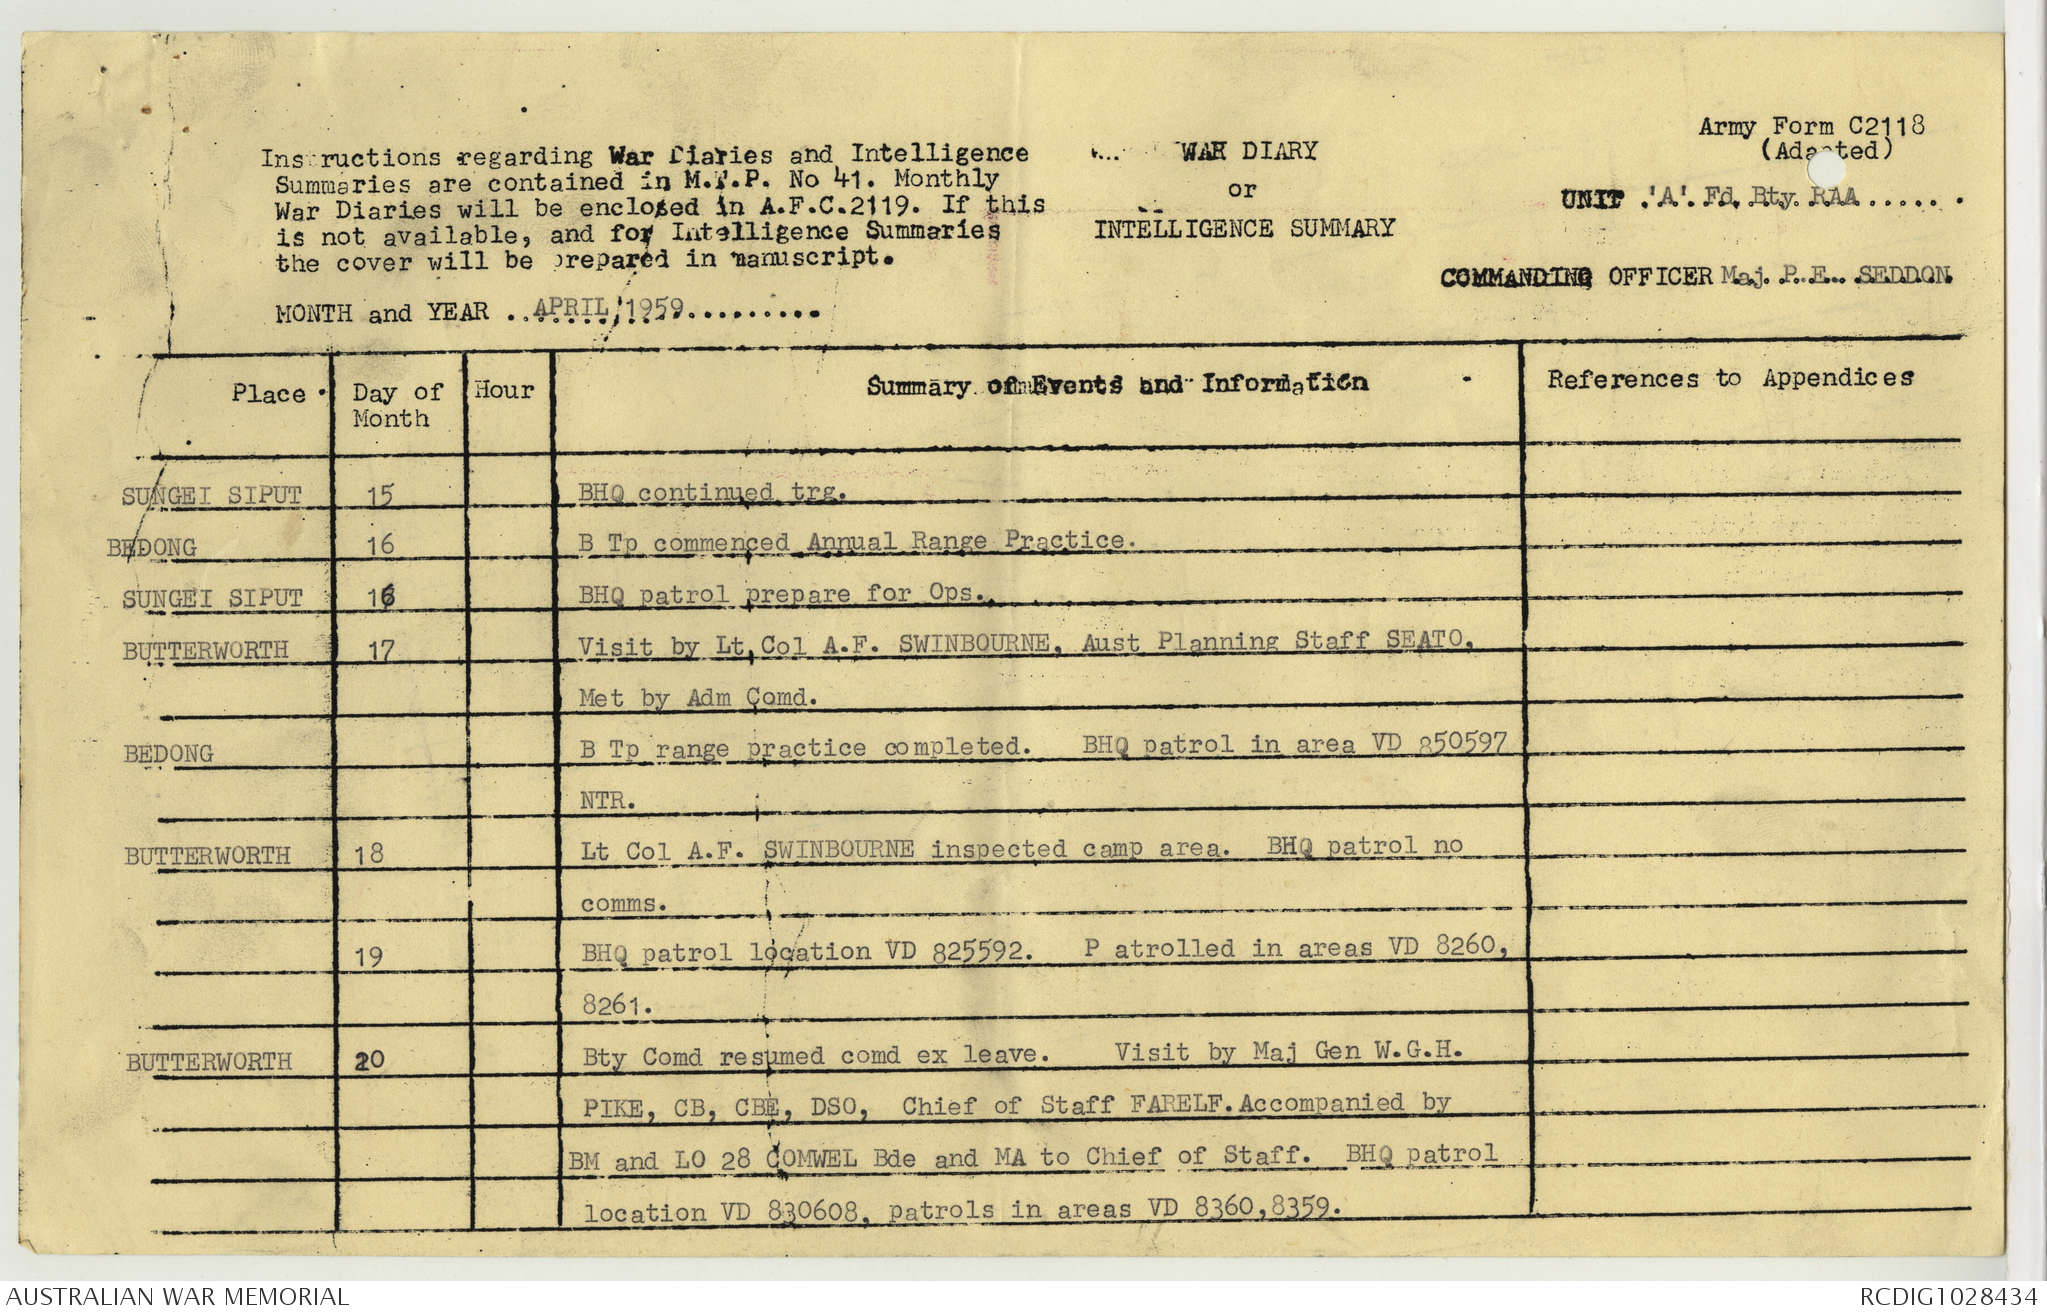 Army Form C2118
(Adapted)
Instructions regarding War Diaries and Intelligence
Summaries are contained in M.T.P. No 41. Monthly
War Diaries will be enclosed in A.F.C.2119. If this
is not available, and for Intelligence Summaries
the cover will be prepared in manuscript.
WAR DIARY
or
INTELLIGENCE SUMMARY
UNIT 'A' Fd Bty RAA
COMMANDING OFFICER Maj. P.E. SEDDON
MONTH and YEAR APRIL, 1959
Place Day of Month Hour Summary of Events and Information References to Appendices
SUNGEI SIPUT 15 BHQ continued trg.
BEDONG 16 B Tp commenced Annual Range Practice.
SUNGEI SIPUT 16 BHQ patrol prepare for Ops.
BUTTERWORTH 17 Visit by Lt Col A.F. SWINBOURNE, Aust Planning Staff SEATO.
Met by Adm Comd.
BEDONG B Tp range practice completed. BHQ patrol in area VD 850597
NTR.
BUTTERWORTH 18 Lt Col A.F. SWINBOURNE inspected camp area. BHQ patrol no
comms.
19 BHQ patrol location VD 825592. P atrolled in areas VD 8260,
8261.
BUTTERWORTH 20 Bty Comd resumed comd ex leave. Visit by Maj Gen W.G.H.
PIKE, CB, CBE, DSO, Chief of Staff FARELF. Accompanied by
BM and LO 28 COMWEL Bde and MA to Chief of Staff. BHQ patrol
location VD 830608, patrols in areas VD 8360,8359.
AUSTRALIAN WAR MEMORIAL
RCDIG1028434